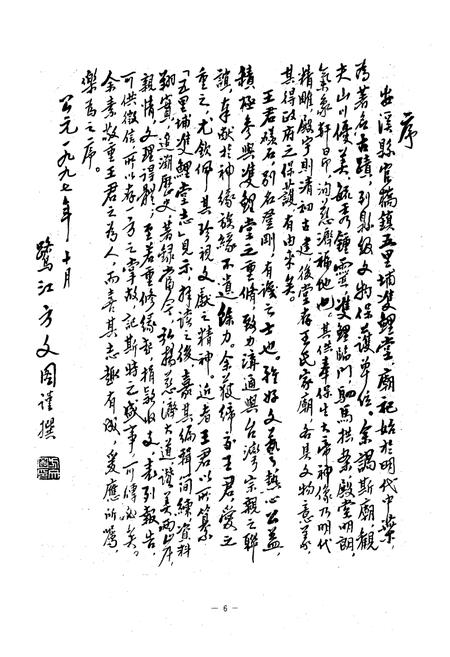 序
安溪縣官橋鎮五里埔雙鯉堂廟祀始於明代中葉,
為著名古蹟,列縣級文物保護單位。余謁斯廟,觀
夫山川優美,毓秀鍾靈,雙鯉臨門,駟馬拱案,殿堂明朗,
氣象軒昂,洵慈濟福地也。其供奉保生大帝神像乃明代
精雕,殿宇則清初古建,後堂有王氏家廟,各具文物意義,
其得政府之保護有由來矣。
王君樣石,別名登剛,有識之士也。雅好文藝,熱心公益,
積極參與雙鯉堂之重修,致力溝通與台灣宗親之聯
誼,奉獻於神緣族緣不遺餘力。余獲締交王君,愛之
重之,尤欽佩其珍視文獻之精神。近者王君以所纂
「五里埔雙鯉堂志」見示,拜讀之後,嘉其編輯間練,資料
翔實,追溯歷史,著錄當今,弘揚慈濟大道,讚美兩岸
親情,文理詳雅;至若重修緣起,捐款收支,素列報告,
可供徵信,所以存一方之掌故,記斯時之盛事,可傳必矣。
余素敬重王君之為人,而喜其志趣有成,爰應所囑,
樂為之序。
公元一九九七年十月
鷺江方文圖謹撰
— 6 —